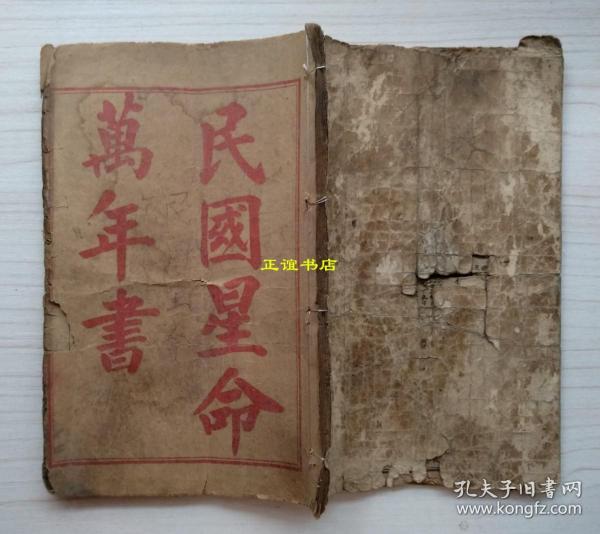 民國星命
萬年書
正谊书店
孔夫子旧书网
www.kongfz.com